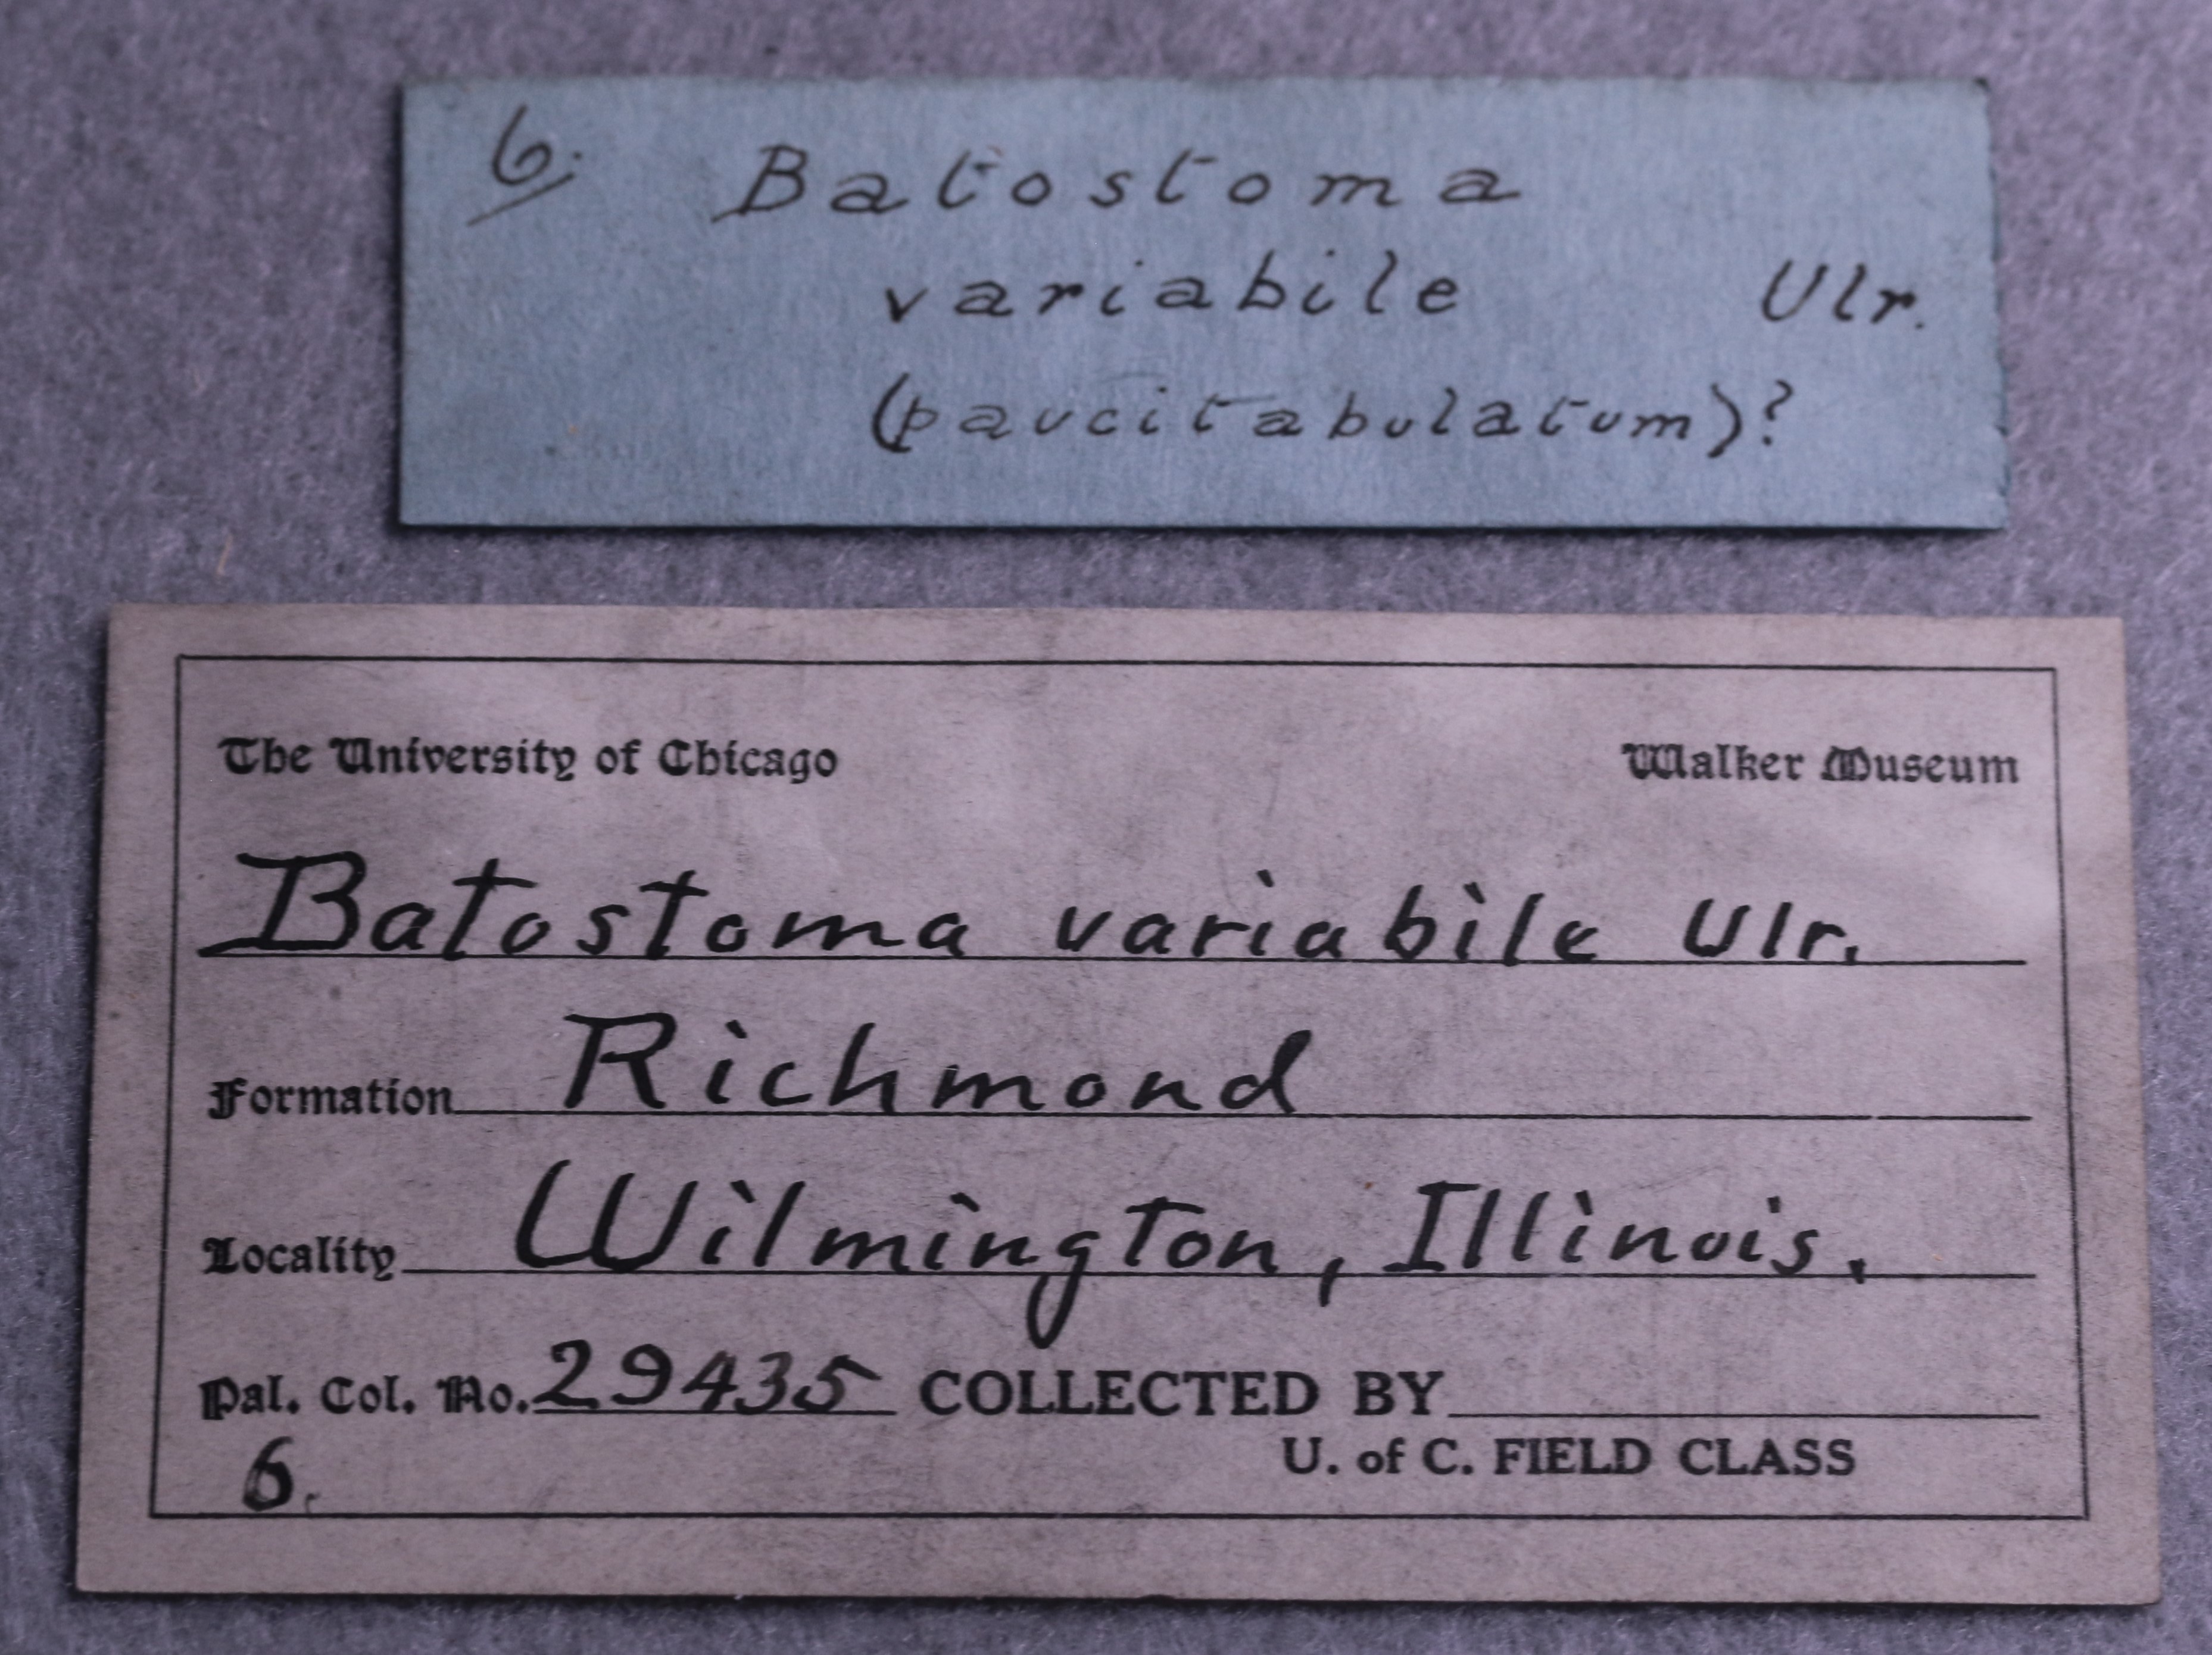 6. Batostoma
variabile Ulr.
(paucitabulatum)?
The University of Chicago Walker Museum
Batostoma variabile Ulr.
Formation Richmond
Locality Wilmington, Illinois.
Pal. Col. No. 29435 COLLECTED BY
6. U. of C. FIELD CLASS